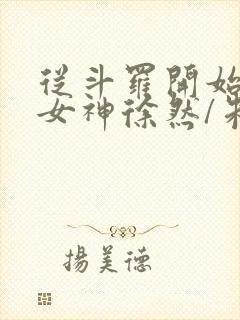 從斗羅開始
女神徐然/朱
揚美德